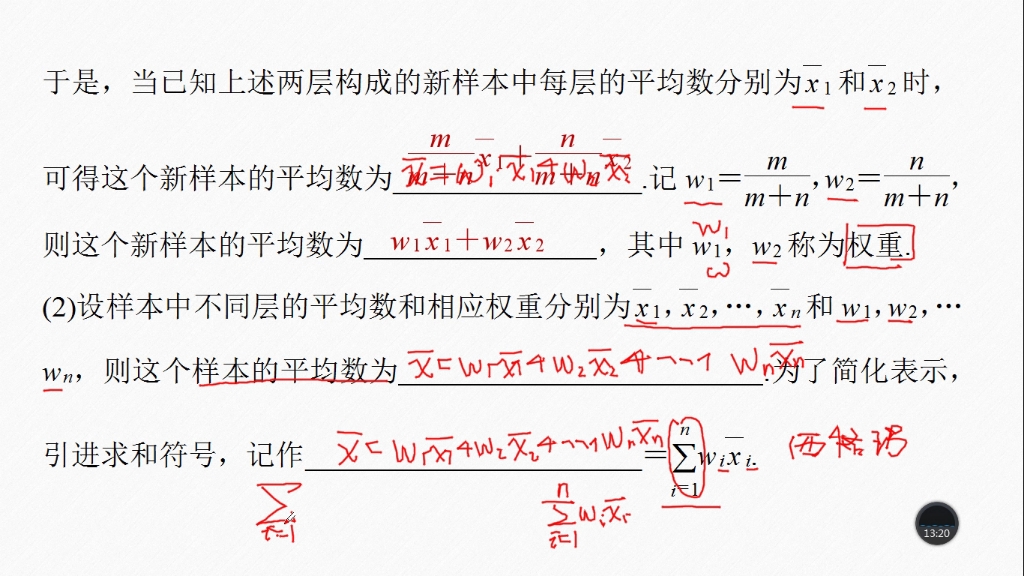 于是，当已知上述两层构成的新样本中每层的平均数分别为x̄₁和x̄₂时，
可得这个新样本的平均数为 m/(m+n) x̄₁ + n/(m+n) x̄₂ .记 w₁＝m/(m＋n)，w₂＝n/(m＋n)，
则这个新样本的平均数为 w₁x̄₁＋w₂x̄₂ ，其中 w₁，w₂ 称为权重.
w₁
ω
(2)设样本中不同层的平均数和相应权重分别为x̄₁，x̄₂，…，x̄ₙ和 w₁，w₂，…
wₙ，则这个样本的平均数为 x̄=w₁x̄₁+w₂x̄₂+---+wₙx̄ₙ .为了简化表示，
引进求和符号，记作 x̄=w₁x̄₁+w₂x̄₂+---+wₙx̄ₙ ＝ ∑ⁿᵢ₌₁ wᵢx̄ᵢ. 西格玛
∑ i=1
n ∑ i=1 wᵢx̄ᵢ
13:20